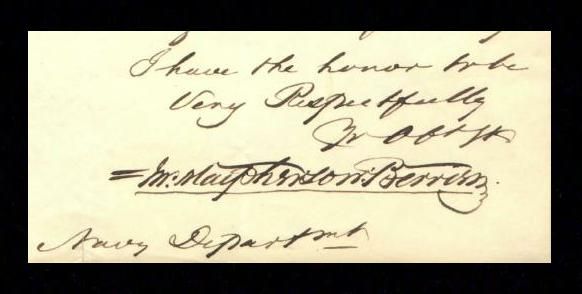 I have the honor to be
Very Respectfully
Yr Obt St
Jn: Macpherson Berrien
Navy Department